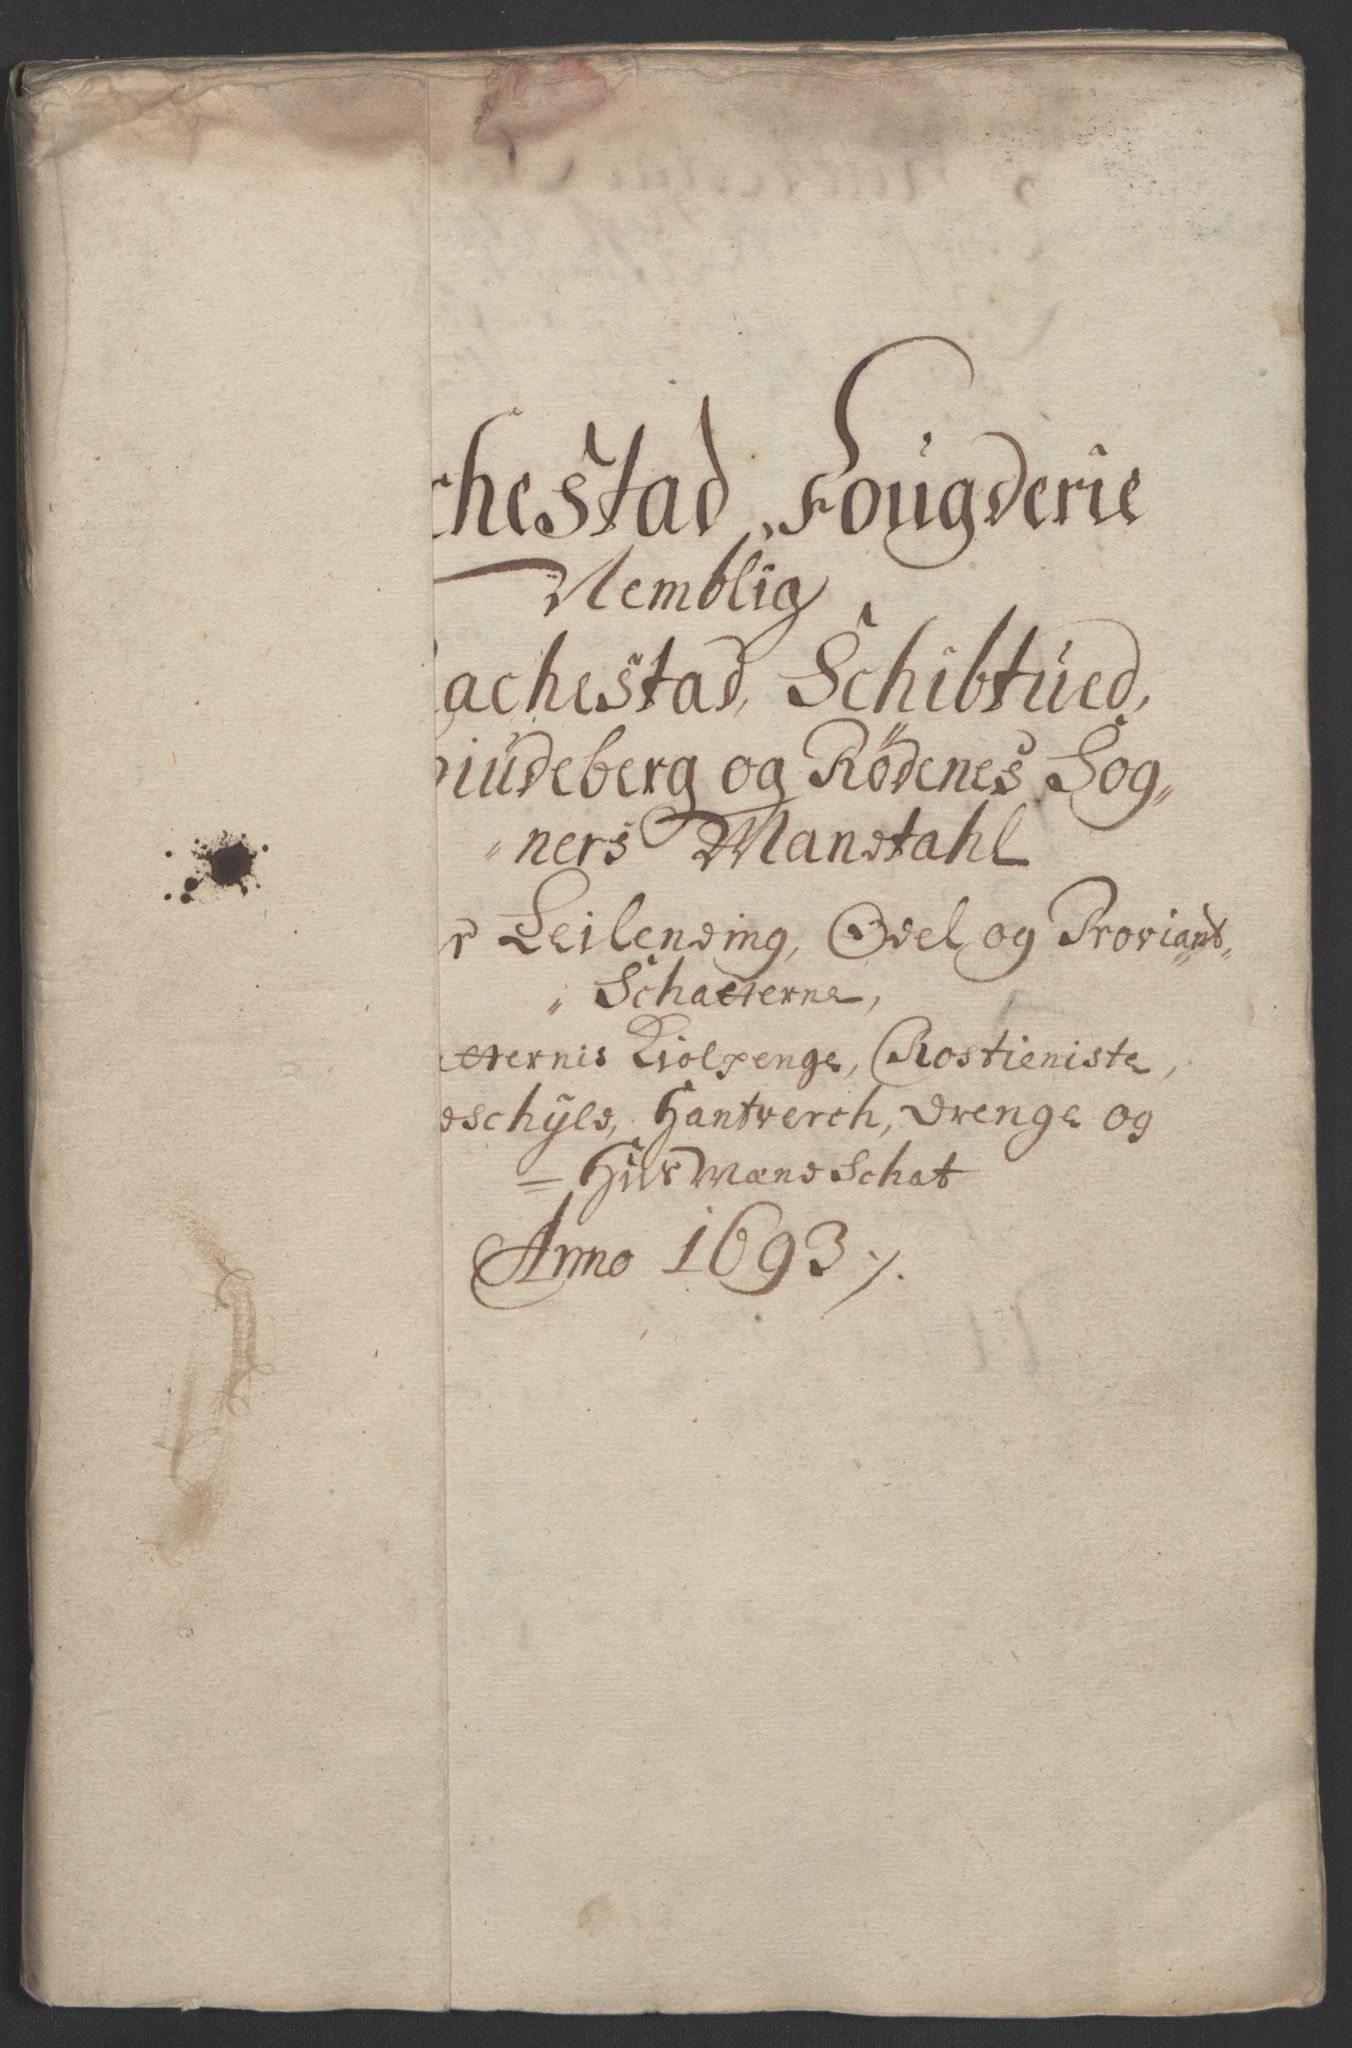 chestad Fougderie
Nemblig
achestad, Schibtued,
iudeberg og Rödenes Sog„
„ners Mandtahl
r Leilending, Odel og Proviant„
„Schatterne,
tternis Kiolpenge, Rostieniste,
dschyld, Hantverch, drenge og
= Hus Mænd Schat
Anno 1693 ./.